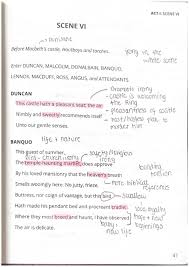 ACT I SCENE VI
SCENE VI
Before Macbeth's castle. Hautboys and torches.
irony in the
scene
Enter DUNCAN, MALCOLM, DONALBAIN, BANQUO,
LENNOX, MACDUFF, ROSS, ANGUS, and ATTENDANTS
Dramatic irony
DUNCAN
castle is welcoming
the King
This castle hath a pleasant seat; the air
pleasantness of castle
Nimbly and sweetly recommends itself
Unto our gentle senses.
murder him
life + nature
BANQUO
This guest of summer,
irony
The temple-haunting martlet, does approve
building
tension
By his loved mansionry that the heaven's breath
Smells wooingly here. No jutty, frieze,
more biblical
references
Buttress, nor coign of vantage, but this bird
swallow
Hath made his pendent bed and procreant cradle:
Where they most breed and haunt, I have observed
The air is delicate.
baby
new life
hope + found
beginnings
41